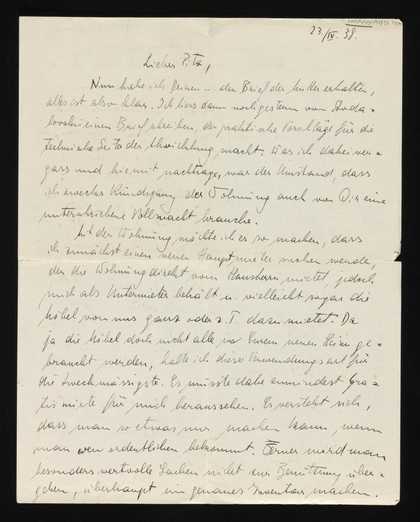 23/IV. 38.
Lieber P
Nun habe ich den Brief der erhalten,
alles ist also klar. Ich liess dann noch gestern von
einen Brief schreiben, der praktische Vorschläge für die
technische Seite der Abwicklung macht. Was ich dabei ver-
gass und hiemit nachtrage, war der Umstand, dass
ich zwecks Kündigung der Wohnung auch von Dir eine
unterschriebene Vollmacht brauche.
Mit der Wohnung möchte ich es so machen, dass
ich zunächst einen neuen Hauptmieter suchen werde,
der die Wohnung direkt vom Hausherrn mietet, jedoch
mich als Untermieter behält u. vielleicht sogar die
Möbel von uns ganz oder z. T. dazu mietet. Da
ja die Möbel doch nicht alle in Eurem neuen Heim ge-
braucht werden, halte ich diese Verwendungsart für
die Zweckmässigste. Es müsste dabei zumindest Gra-
tis miete für mich herausschauen. Es versteht sich,
dass man so etwas nur machen kann, wenn
man wen ordentlichen bekommt. Ferner wird man
besonders wertvolle Sachen nicht zur Benützung über-
geben, überhaupt ein genaues Inventar machen.